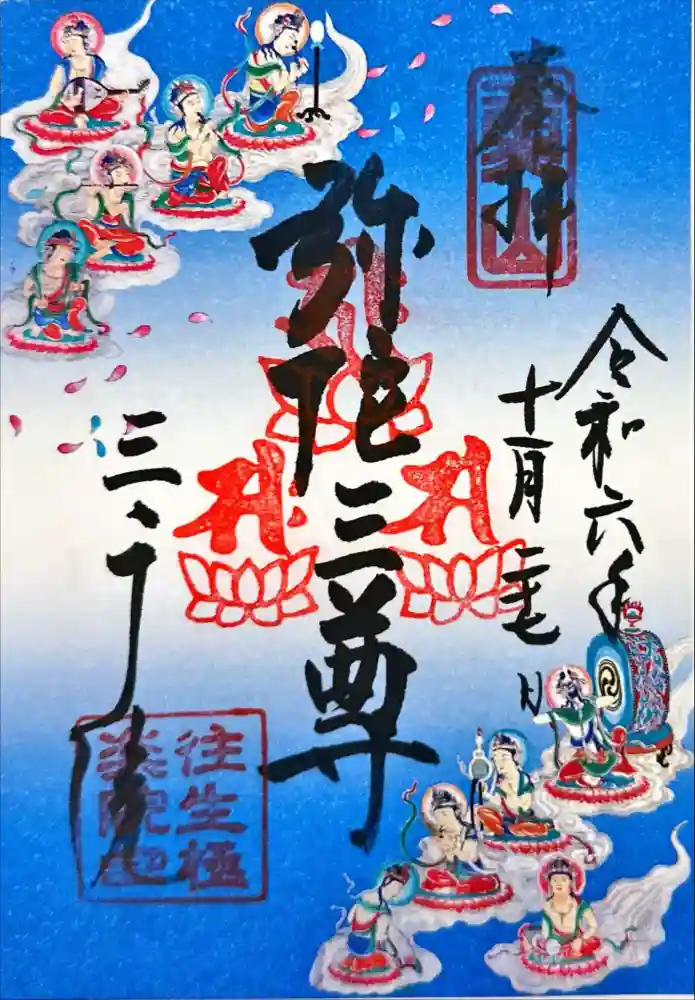 奉拝
令和六年
十一月二十七日
弥陀三尊
三千院
往生極
楽院印